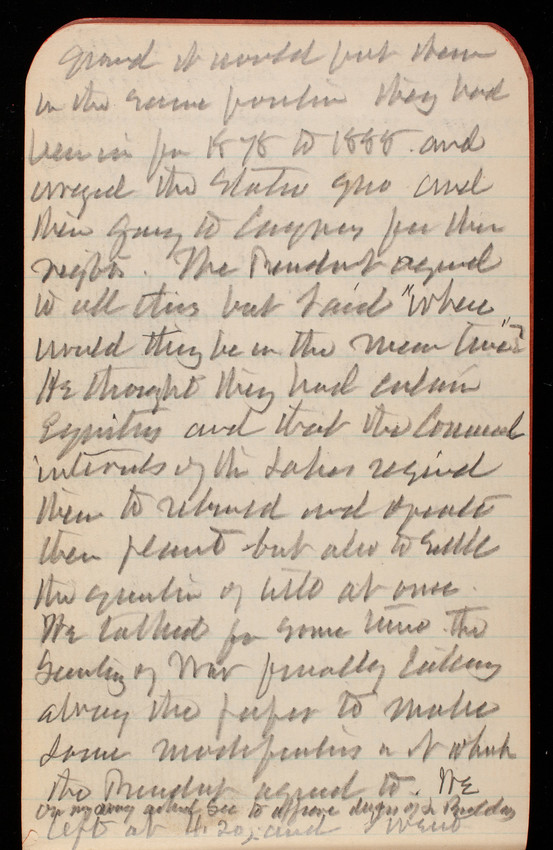 ground it would put them
in the same position they had
been in for 1878 to 1888. and
urged the status quo and
their going to Congress for their
rights. The President agreed
to all this but said "Where
would they be in the mean time"?
He thought they had certain
Equities and that the Commercial
interests of the Lakes required
them to rebuild and operate
their plant but also to settle
the question of title at once.
We talked for some time. the
Secretary of War finally taking
away the paper to make
some modifications in it which
the President agreed to. We
On my way asked Sec to approve design of Buildings
left at 4.20, and I went